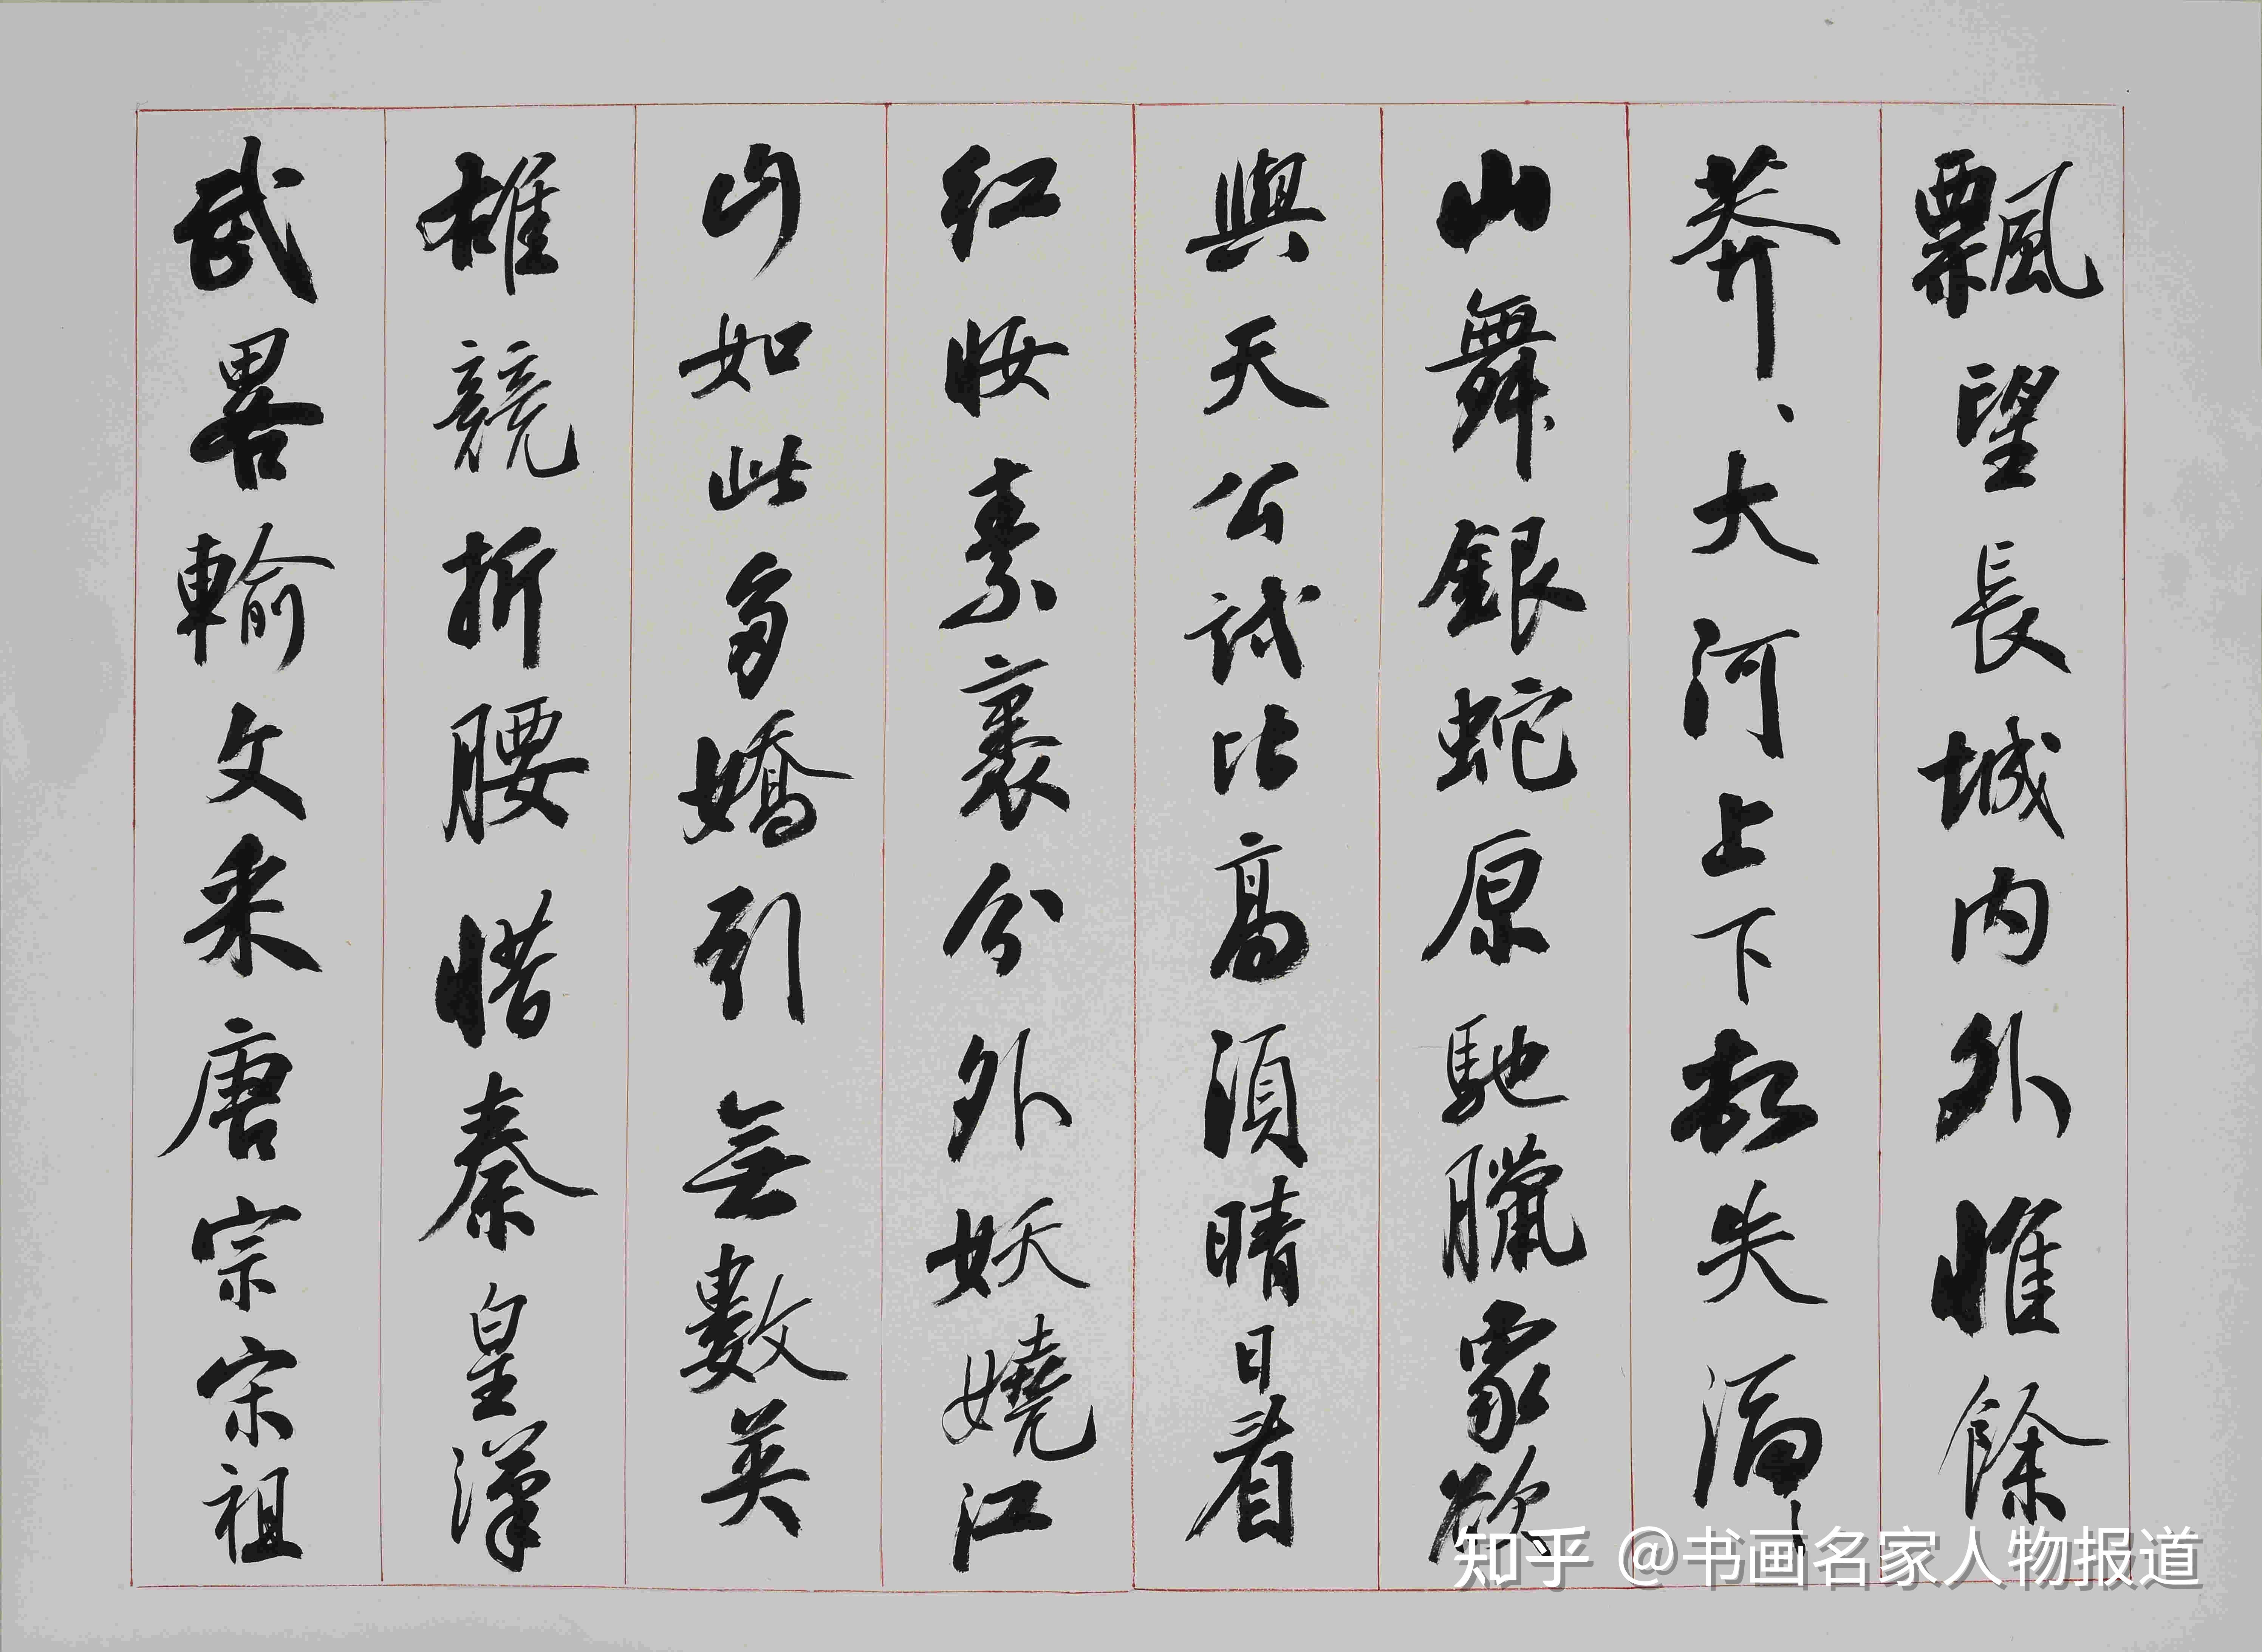 飄望長城内外惟餘
莽、大河上下頓失滔、
山舞銀蛇原馳臘象欲
與天公試比高須晴日看
紅妝素裹分外妖嬈江
山如此多嬌引無數英
雄競折腰惜秦皇漢
武畧輸文采唐宗宋祖
知乎 @书画名家人物报道